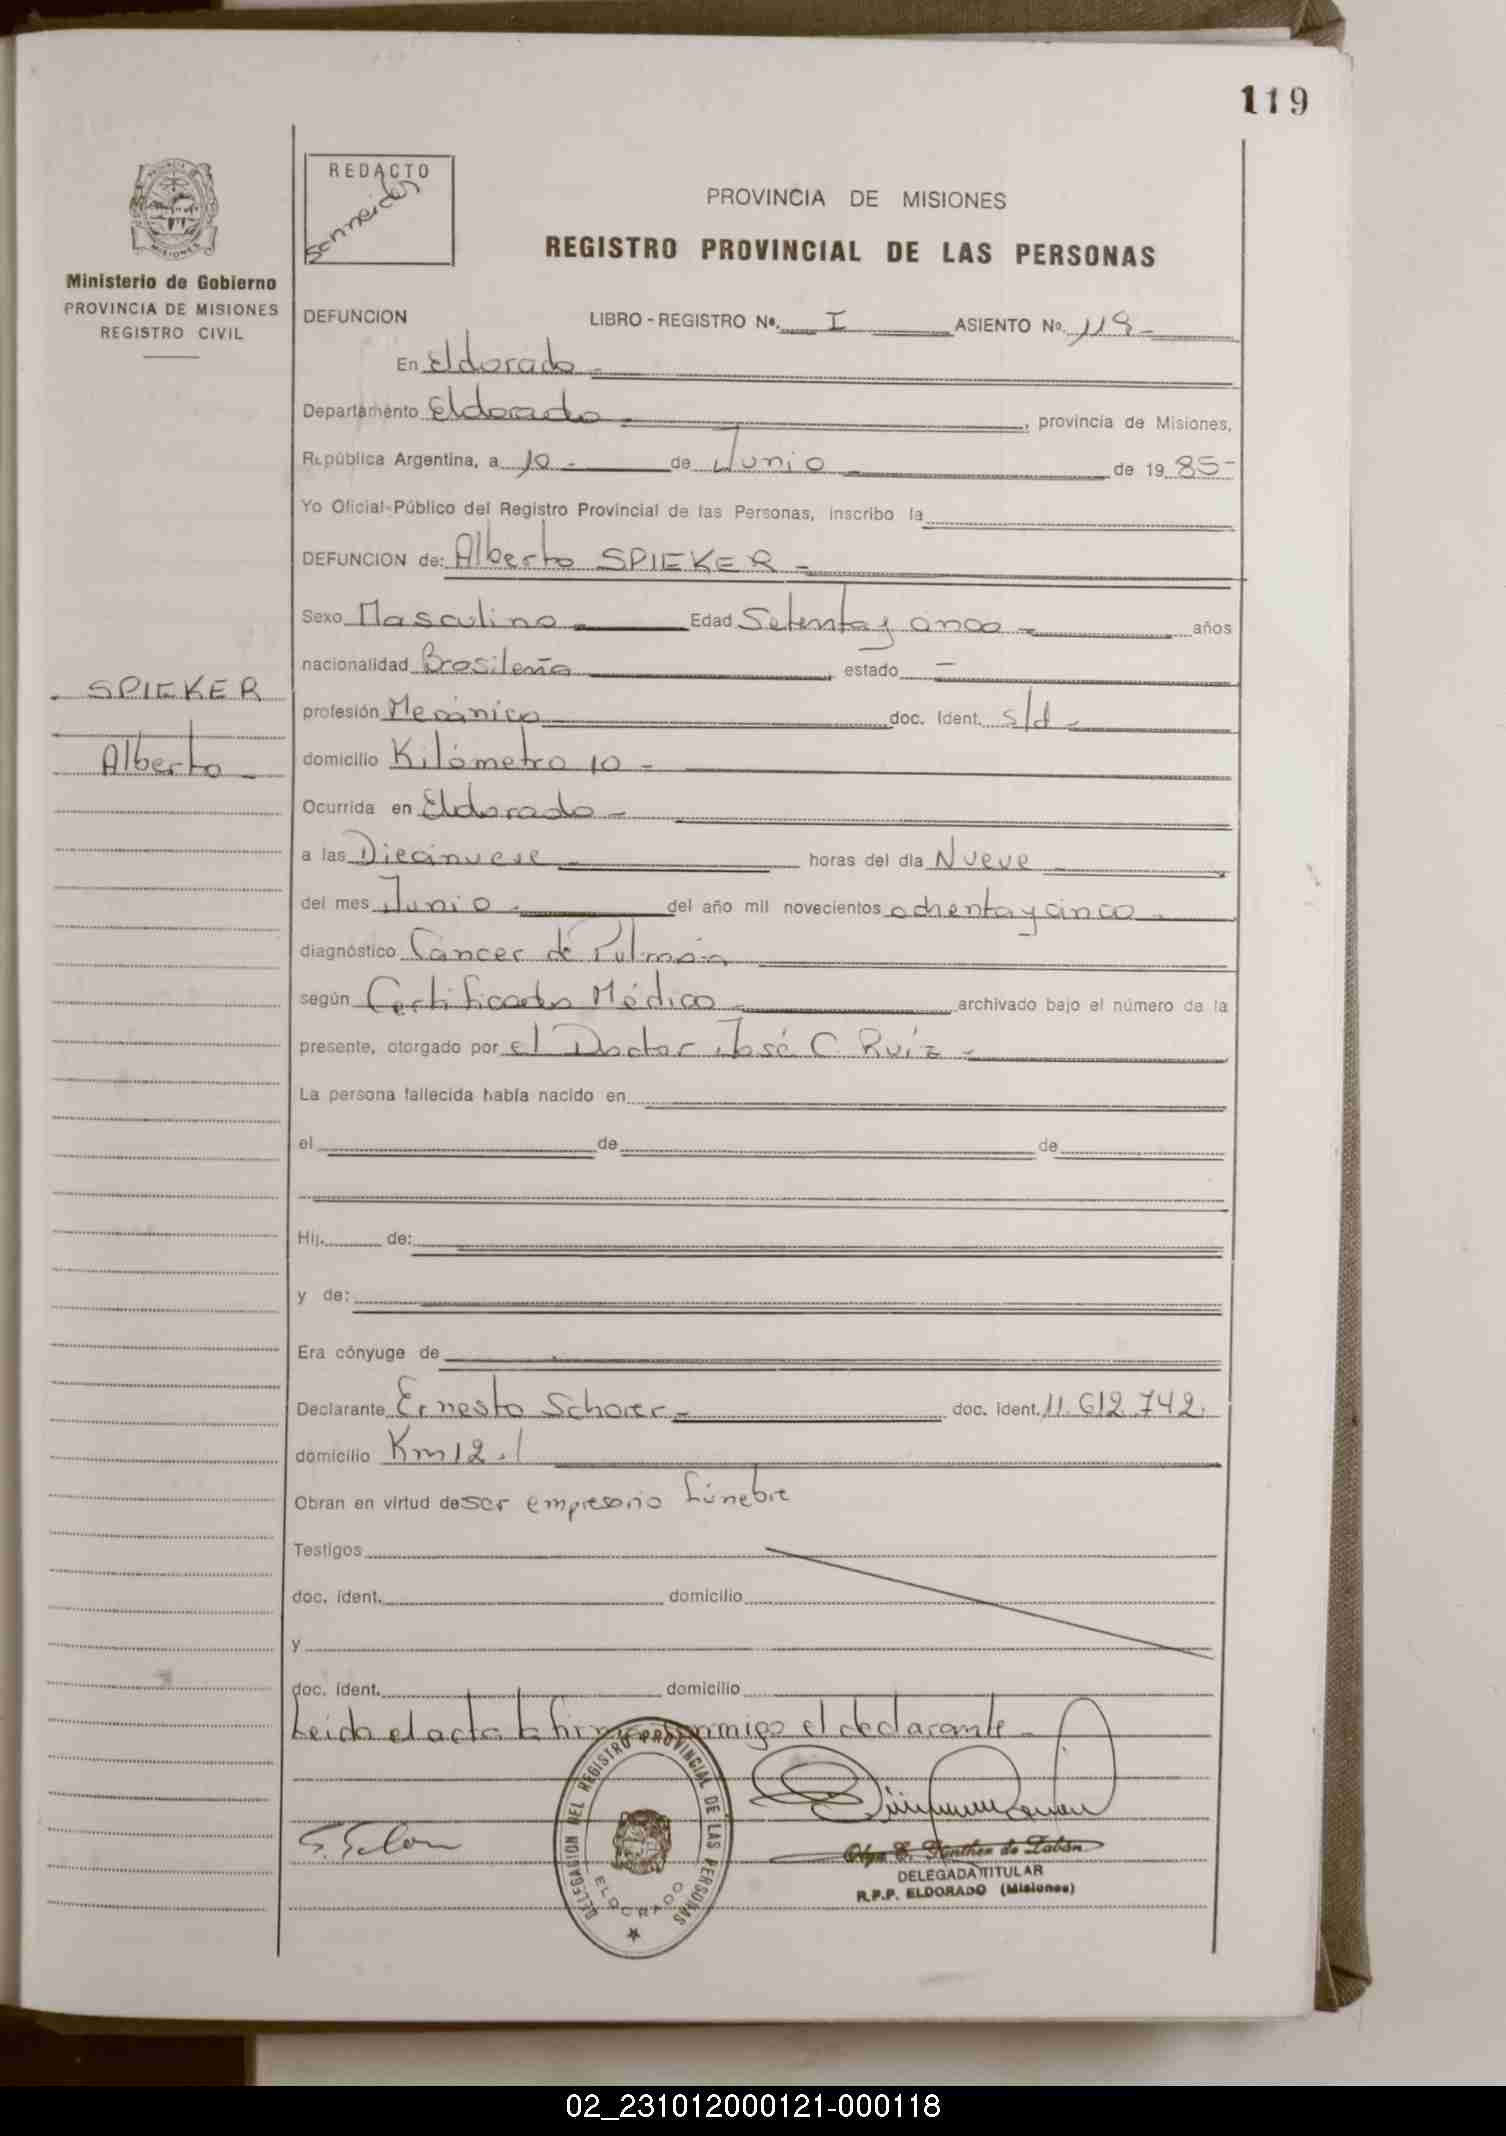 119
REDACTO
Schneider
PROVINCIA DE MISIONES
REGISTRO PROVINCIAL DE LAS PERSONAS
Ministerio de Gobierno
PROVINCIA DE MISIONES
REGISTRO CIVIL
DEFUNCION LIBRO - REGISTRO Nº. I ASIENTO Nº. 119 -
En Eldorado -
Departamento Eldorado -, provincia de Misiones,
República Argentina, a 10 - de Junio - de 1985-
Yo Oficial Público del Registro Provincial de las Personas, inscribo la
DEFUNCION de: Alberto SPIEKER -
Sexo Masculino - Edad Setenta y cinco - años
nacionalidad Brasileña estado -
SPIEKER
Alberto -
profesión Mecánico doc. ident. s/d -
domicilio Kilómetro 10 -
Ocurrida en Eldorado -
a las Diecinueve - horas del día Nueve
del mes Junio - del año mil novecientos ochenta y cinco -
diagnóstico Cáncer de Pulmón
según Certificado Médico archivado bajo el número de la
presente, otorgado por el Doctor José C. Ruíz -
La persona fallecida había nacido en
el de de
Hij. de:
y de:
Era cónyuge de
Declarante Ernesto Schorer - doc. ident. 11.612.742.
domicilio Km 12.
Obran en virtud de ser empresario fúnebre
Testigos
doc. ident. domicilio
y
doc. ident. domicilio
Leida el acta la firma conmigo el declarante -
DELEGACION DEL REGISTRO PROVINCIAL DE LAS PERSONAS
ELDORADO
DELEGADA TITULAR
R.P.P. ELDORADO (Misiones)
02_231012000121-000118